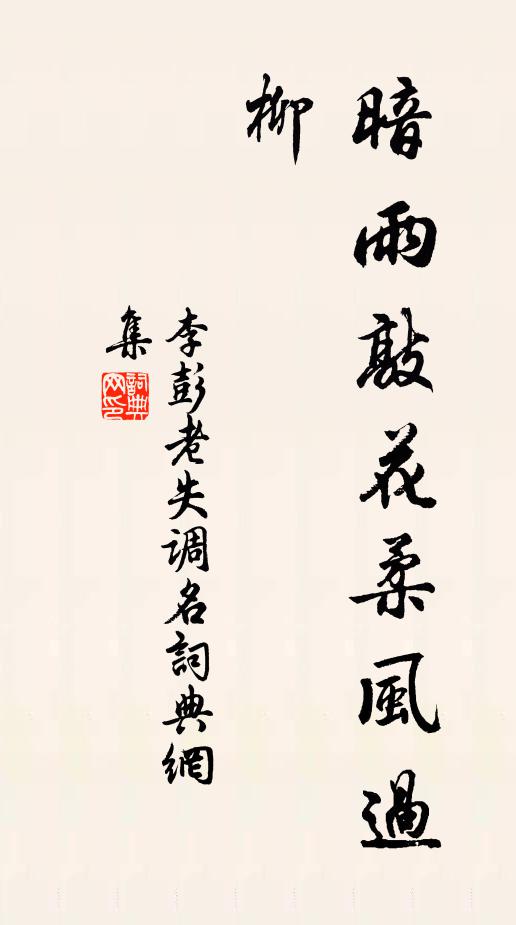 暗雨敲花柔風過
柳
李彭老失调名詞典網
集
詞典
网印